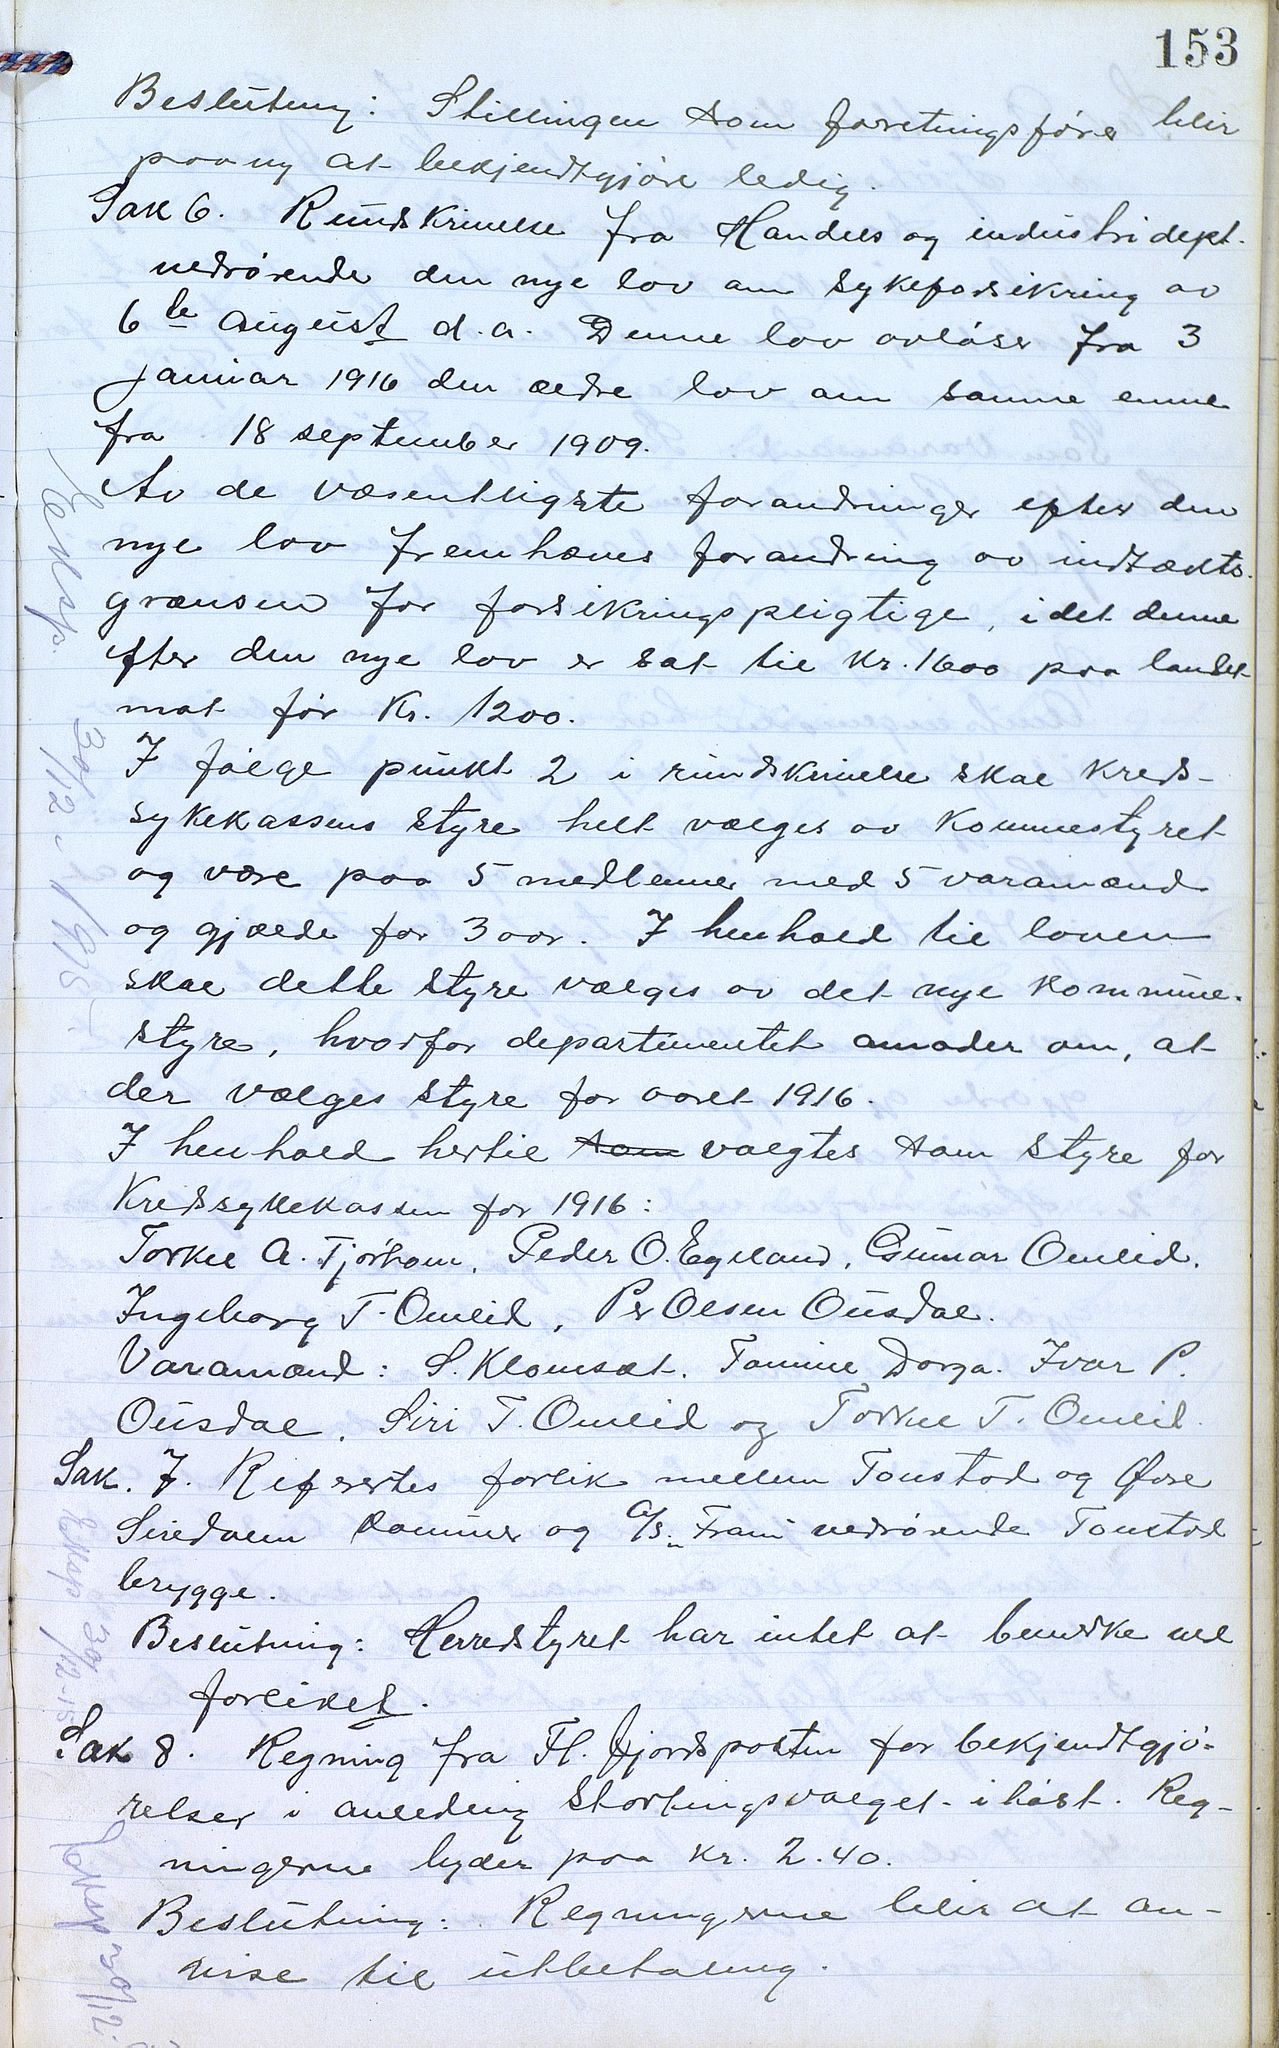 153
Beslutning: Stillingen som forretningsfører blir
paany at bekjendtgjøre ledig.
Sak 6. Rundskrivelse fra Handels og industridept.
vedrørende den nye lov om sykeforsikring av
6te august d.a. Denne lov avløser fra 3
januar 1916 den ældre lov om samme emne
fra 18 september 1909.
Av de væsentligste forandringer efter den
nye lov fremhæves forandring av indtækts-
grænsen for forsikringspligtige, idet denne
efter den nye lov er sat til Kr. 1600 paa landet
mot før Kr. 1200.
I følge punkt 2 i rundskrivelse skal kreds-
sykekassens styre helt vælges av Kommestyret
og være paa 5 medlemmer med 5 varamænd
og gjælde for 3 aar. I henhold til loven
skal dette styre vælges av det nye kommune-
styre, hvorfor departementet anmoder om, at
der vælges styre for aaret 1916.
I henhold hertil som valgtes som styre for
Kredssykekassen for 1916:
Torkel A. Tjørhom, Peder O. Egeland, Gunnar Omlid,
Ingeborg T. Omlid, Per Olsen Ousdal.
Varamænd: S. Klomsæt. Tomine Dorga. Ivar P.
Ousdal, Siri T. Omlid og Torkel T. Omlid.
Sak. 7. Refertes forlik mellem Tonstad og Øvre
Siredalen kommuner og A/S. Fram vedrørende Tonstad
brygge.
Beslutning: Herredstyret har intet at bemerke ved
forliket.
Sak 8. Regning fra Fl. Fjordsposten for bekjendtgjø-
relser i anledning Stortingsvalget i høst. Reg-
ningerne lyder paa kr. 2.40.
Beslutning: Regningerne blir at an-
vise til utbetaling.
Eksp.
30/12-1915.
Eksp 30/12-15
Eksp 30/12.